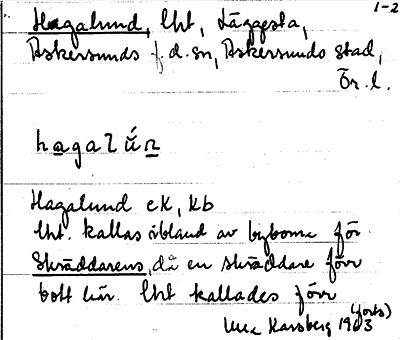 1-2
Hagalund, lht, Läggesta,
Askersunds f.d. sn, Askersunds stad,
Ör. l.
hagalún
Hagalund ek, kb
lht. kallas ibland av byborna för
Skräddarens, då en skräddare förr
bott här. lht kallades förr
(forts)
Karsberg 1933